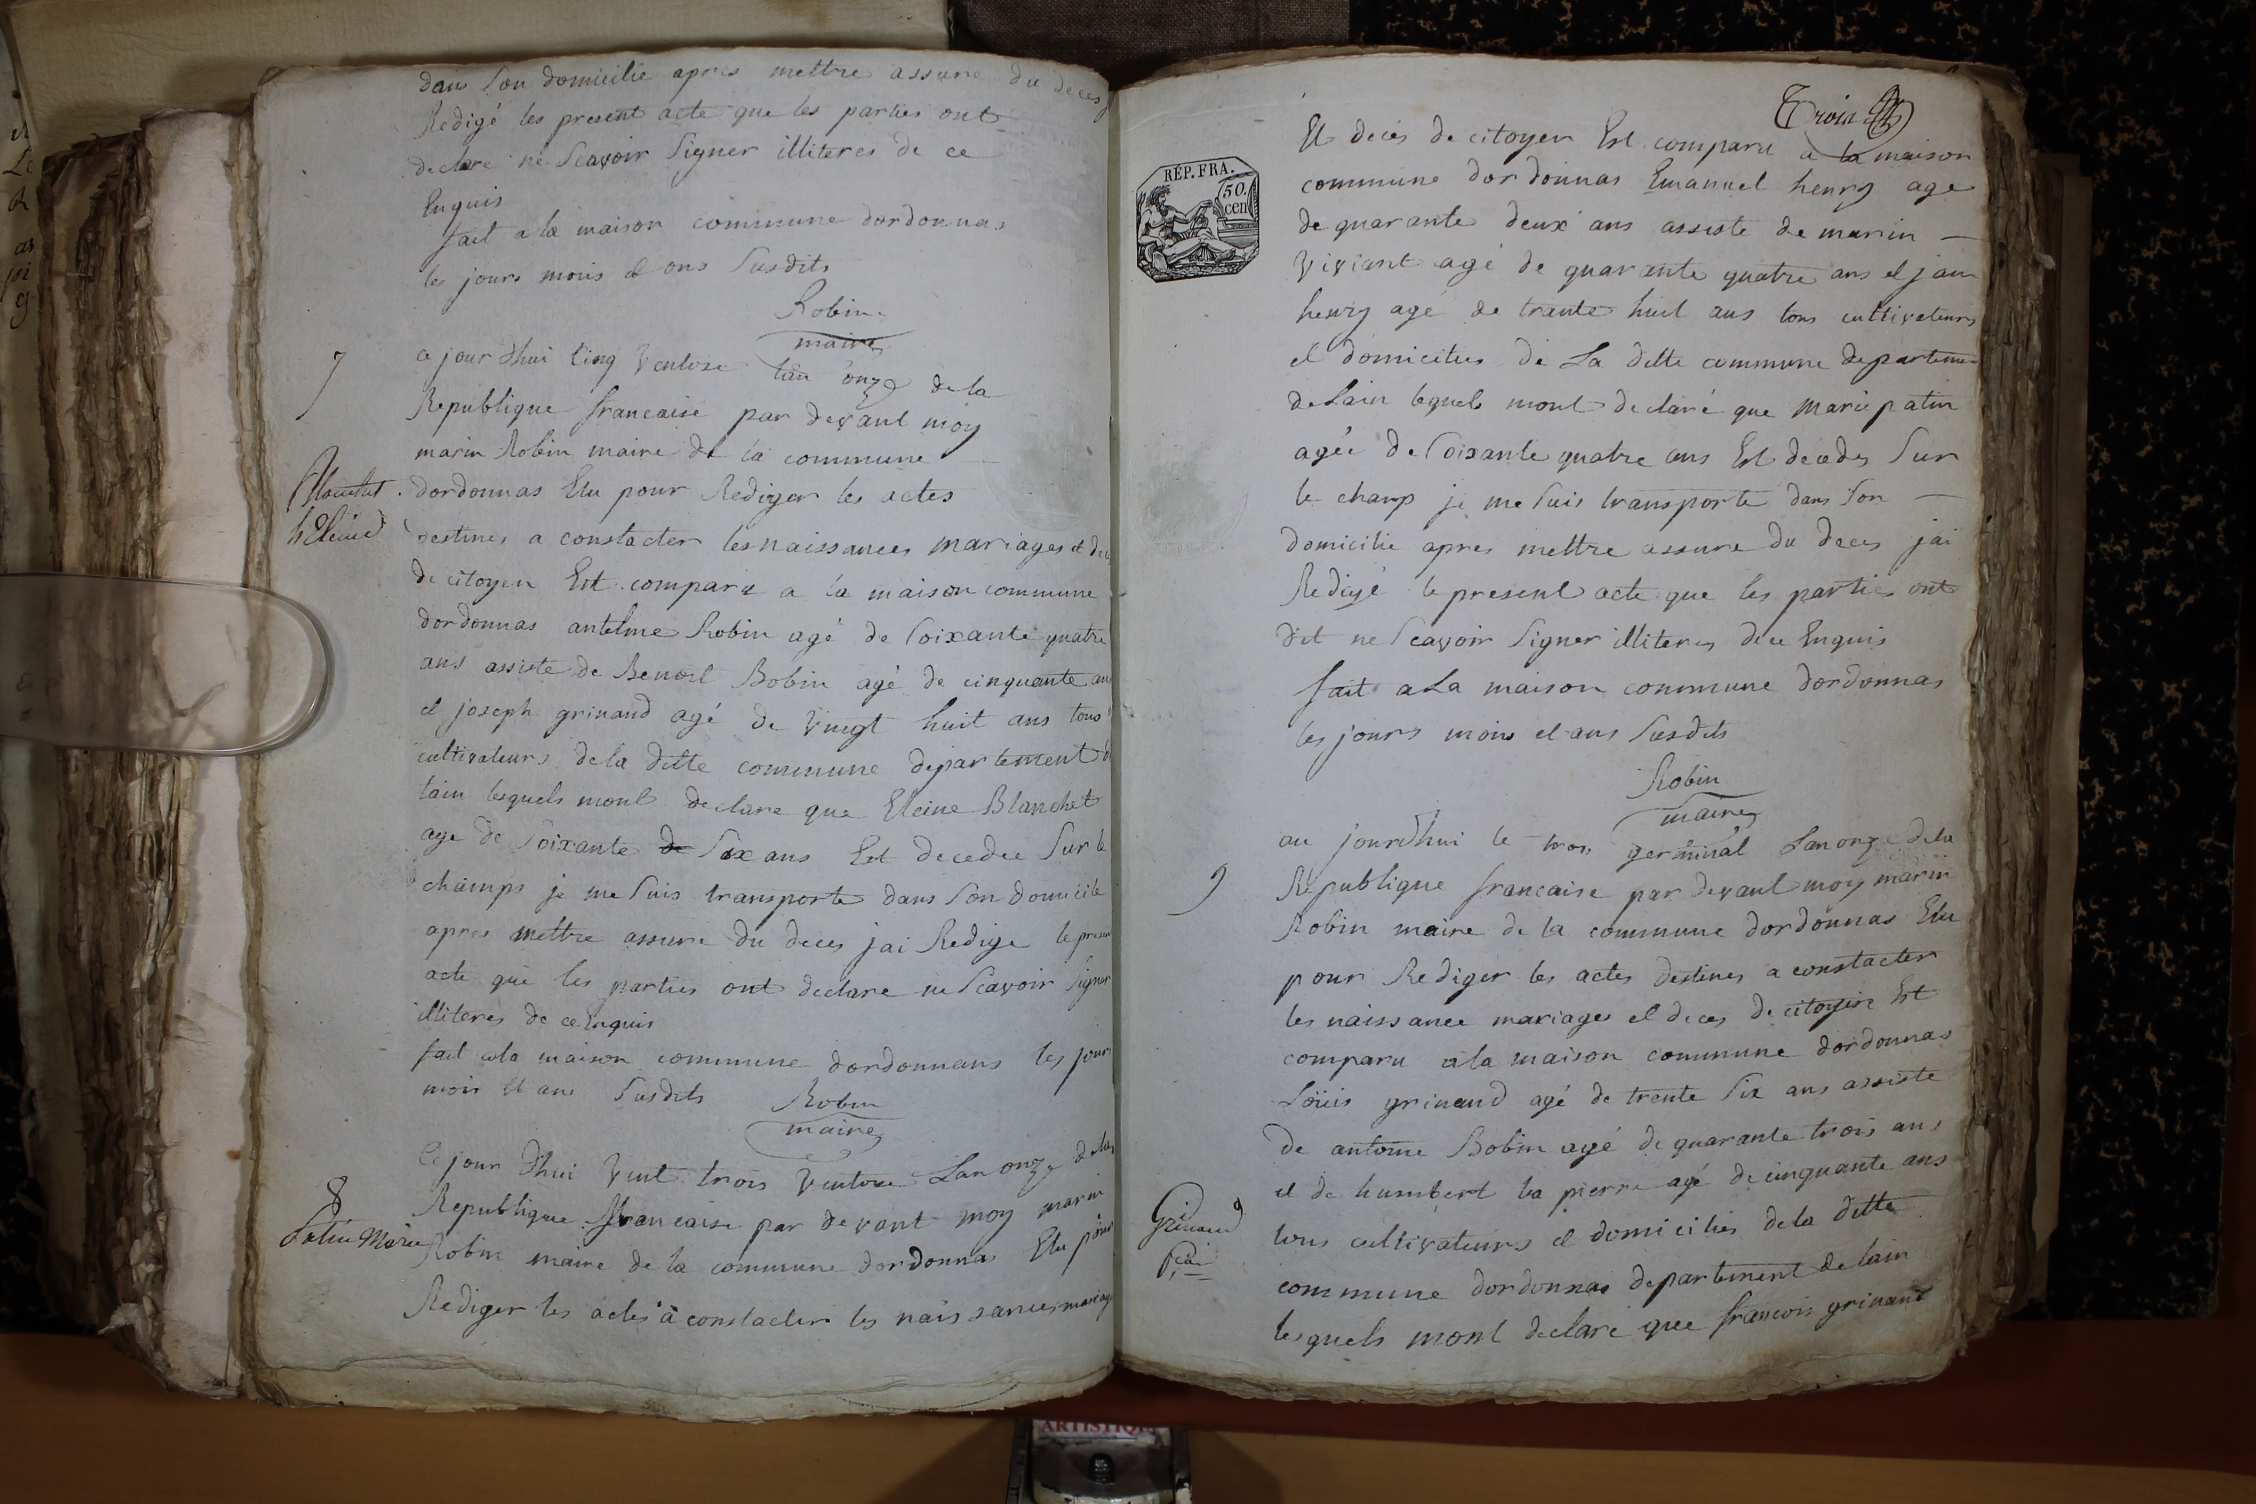 dans Son domicilie apres mettre assure du deces j
Redigé les present acte que les parties ont
declare ne Scavoir Signer illiteres de ce
Enquis
fait a la maison commune dordonnas
les jours mois et ans Susdits
Robin
maire
7
a jour dhui Cinq Ventose lan onze de la
Republique francaise par devant moy
marin Robin maire de la commune
Blanchet
dordonnas Elu pour Rediger les actes
héleine
destines a constacter les naissances mariages et deces
de citoyen Est comparu a la maison commune
dordonnas antelme Robin agé de Soixante quatre
ans assiste de Benoit Bobin agé de cinquante ans
et joseph grinand agé de Vingt huit ans tous
cultivateurs de la ditte commune departement de
lain lesquels mont declare que Eleine Blanchet
age de Soixante de Six ans Est decedee Sur le
champs je me Suis transporte dans Son domicile
apres mettre assure du deces jai Redige le present
acte que les parties ont declare ne Scavoir Signer
illiteres de ce Enquis
fait a la maison commune dordonnans les jours
mois Et ans Susdits
Robin
maire
8
Ce jour dhui Vint trois Ventose Lan onze de la
Patin Marie
Republique francaise par devant moy marin
Robin maire de la commune dordonnas Elu pour
Rediger les actes à constacter les naissances mariages
Trois
REP. FRA.
50.
cen
Et deces de citoyen Est comparu a la maison
commune dordonnas Emanuel henry age
de quarante deux ans assiste de marin —
Viviant agé de quarante quatre ans et jan
henry agé de trante huit ans tous cultivateurs
et domicilies de La ditte commune departement
de Lain lequels mont declaré que Marie patin
agée de Soixante quatre ans Est decedes Sur
le champ je me Suis transporte dans Son —
domicilie apres mettre assure du deces jai
Redigé le present acte que les parties ont
dit ne Scavoir Signer illiteres de ce Enquis
fait a La maison commune dordonnas
les jours mois et ans Susdits
Robin
maire
au jourdhui le trois germinal Lan onze de la
9
Republique francaise par devant moy marin
Robin maire de la commune dordonnas Elu
pour Rediger les actes destines a constacter
les naissance mariages et deces de citoyin Est
comparu a la maison commune dordonnas
Loüis grinand agé de trente Six ans assiste
de antoine Bobin agé de quarante trois ans
et de humbert la pierre agé de cinquante ans
Grinand
tous cultivateurs et domiciliés de la ditte
fcoi
commune dordonnas departement de lain
lesquels mont declare que francois grinand